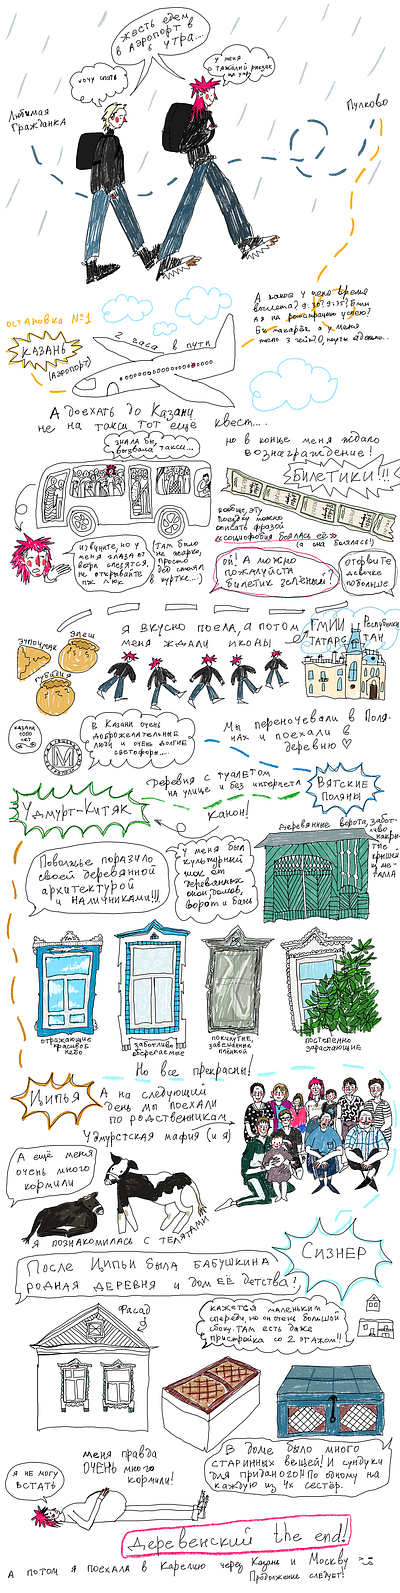 жесть едем
в аэропорт в
6 утра...
хочу спать
у меня
тяжёлый рюкзак
Любимая
Гражданка
Пулково
А какое у меня время
вылета? 9:30? 9:35? Блин
а я на регистрацию успею?
остановка №1
КАЗАНЬ
(аэропорт)
2 часа в пути
А доехать до Казани
не на такси тот ещё квест....
знала бы,
вызвала такси...
но в конце меня ждало
вознаграждение!
БИЛЕТИКИ!!!
вообще, эту
поездку можно
описать фразой
«социофобия боялась её»
(а она боялась!)
извините, но у
меня глаза от
жары слезятся,
не открывайте
пж люк
(там было
не жарко,
просто
дед стоял
в куртке...)
ой! А можно
пожалуйста
билетик зелёный?
оторвите
девочке
побольше
эчпочмак
элеш
губадия
я вкусно поела, а потом
меня ждали иконы
ГМИИ Республики
Татарстан
казани
1000
лет
М
В Казани очень
доброжелательные
люди и очень долгие
светофоры...
Мы переночевали в Поля-
нах и поехали в
деревню
деревня с туалетом
на улице и без интернета
Вятские
Поляны
Удмурт-Китяк
канон!
Поволжье поразило
своей деревянной
архитектурой
и наличниками!!!
у меня был
культурный
шок от
деревянных
окон, домов,
ворот и бань
деревянные ворота, забот-
ливо
накры-
тые
крышей
отражающие
красивое
небо
заботливо
оберегаемые
покинутые,
завешанные
плёнкой
постепенно
зарастающие
Но все прекрасны!
Ципья
А на следующий
день мы поехали
по родственникам
Удмурстская мафия (и я)
А ещё меня
очень много
кормили
я познакомилась с телятами
Сизнер
После Ципьи была бабушкина
родная деревня и дом её детства!
Фасад
кажется маленьким
спереди, но он очень большой
сбоку. Там есть даже
пристройка со 2 этажом!!
меня правда
ОЧЕНЬ много
кормили!
я не могу
встать
В доме было много
старинных вещей! И сундуки
для приданого!! По одному на
каждую из 4х сестёр.
Деревенский the end!
А потом я поехала в Карелию через Казань и Москву
Продолжение следует!